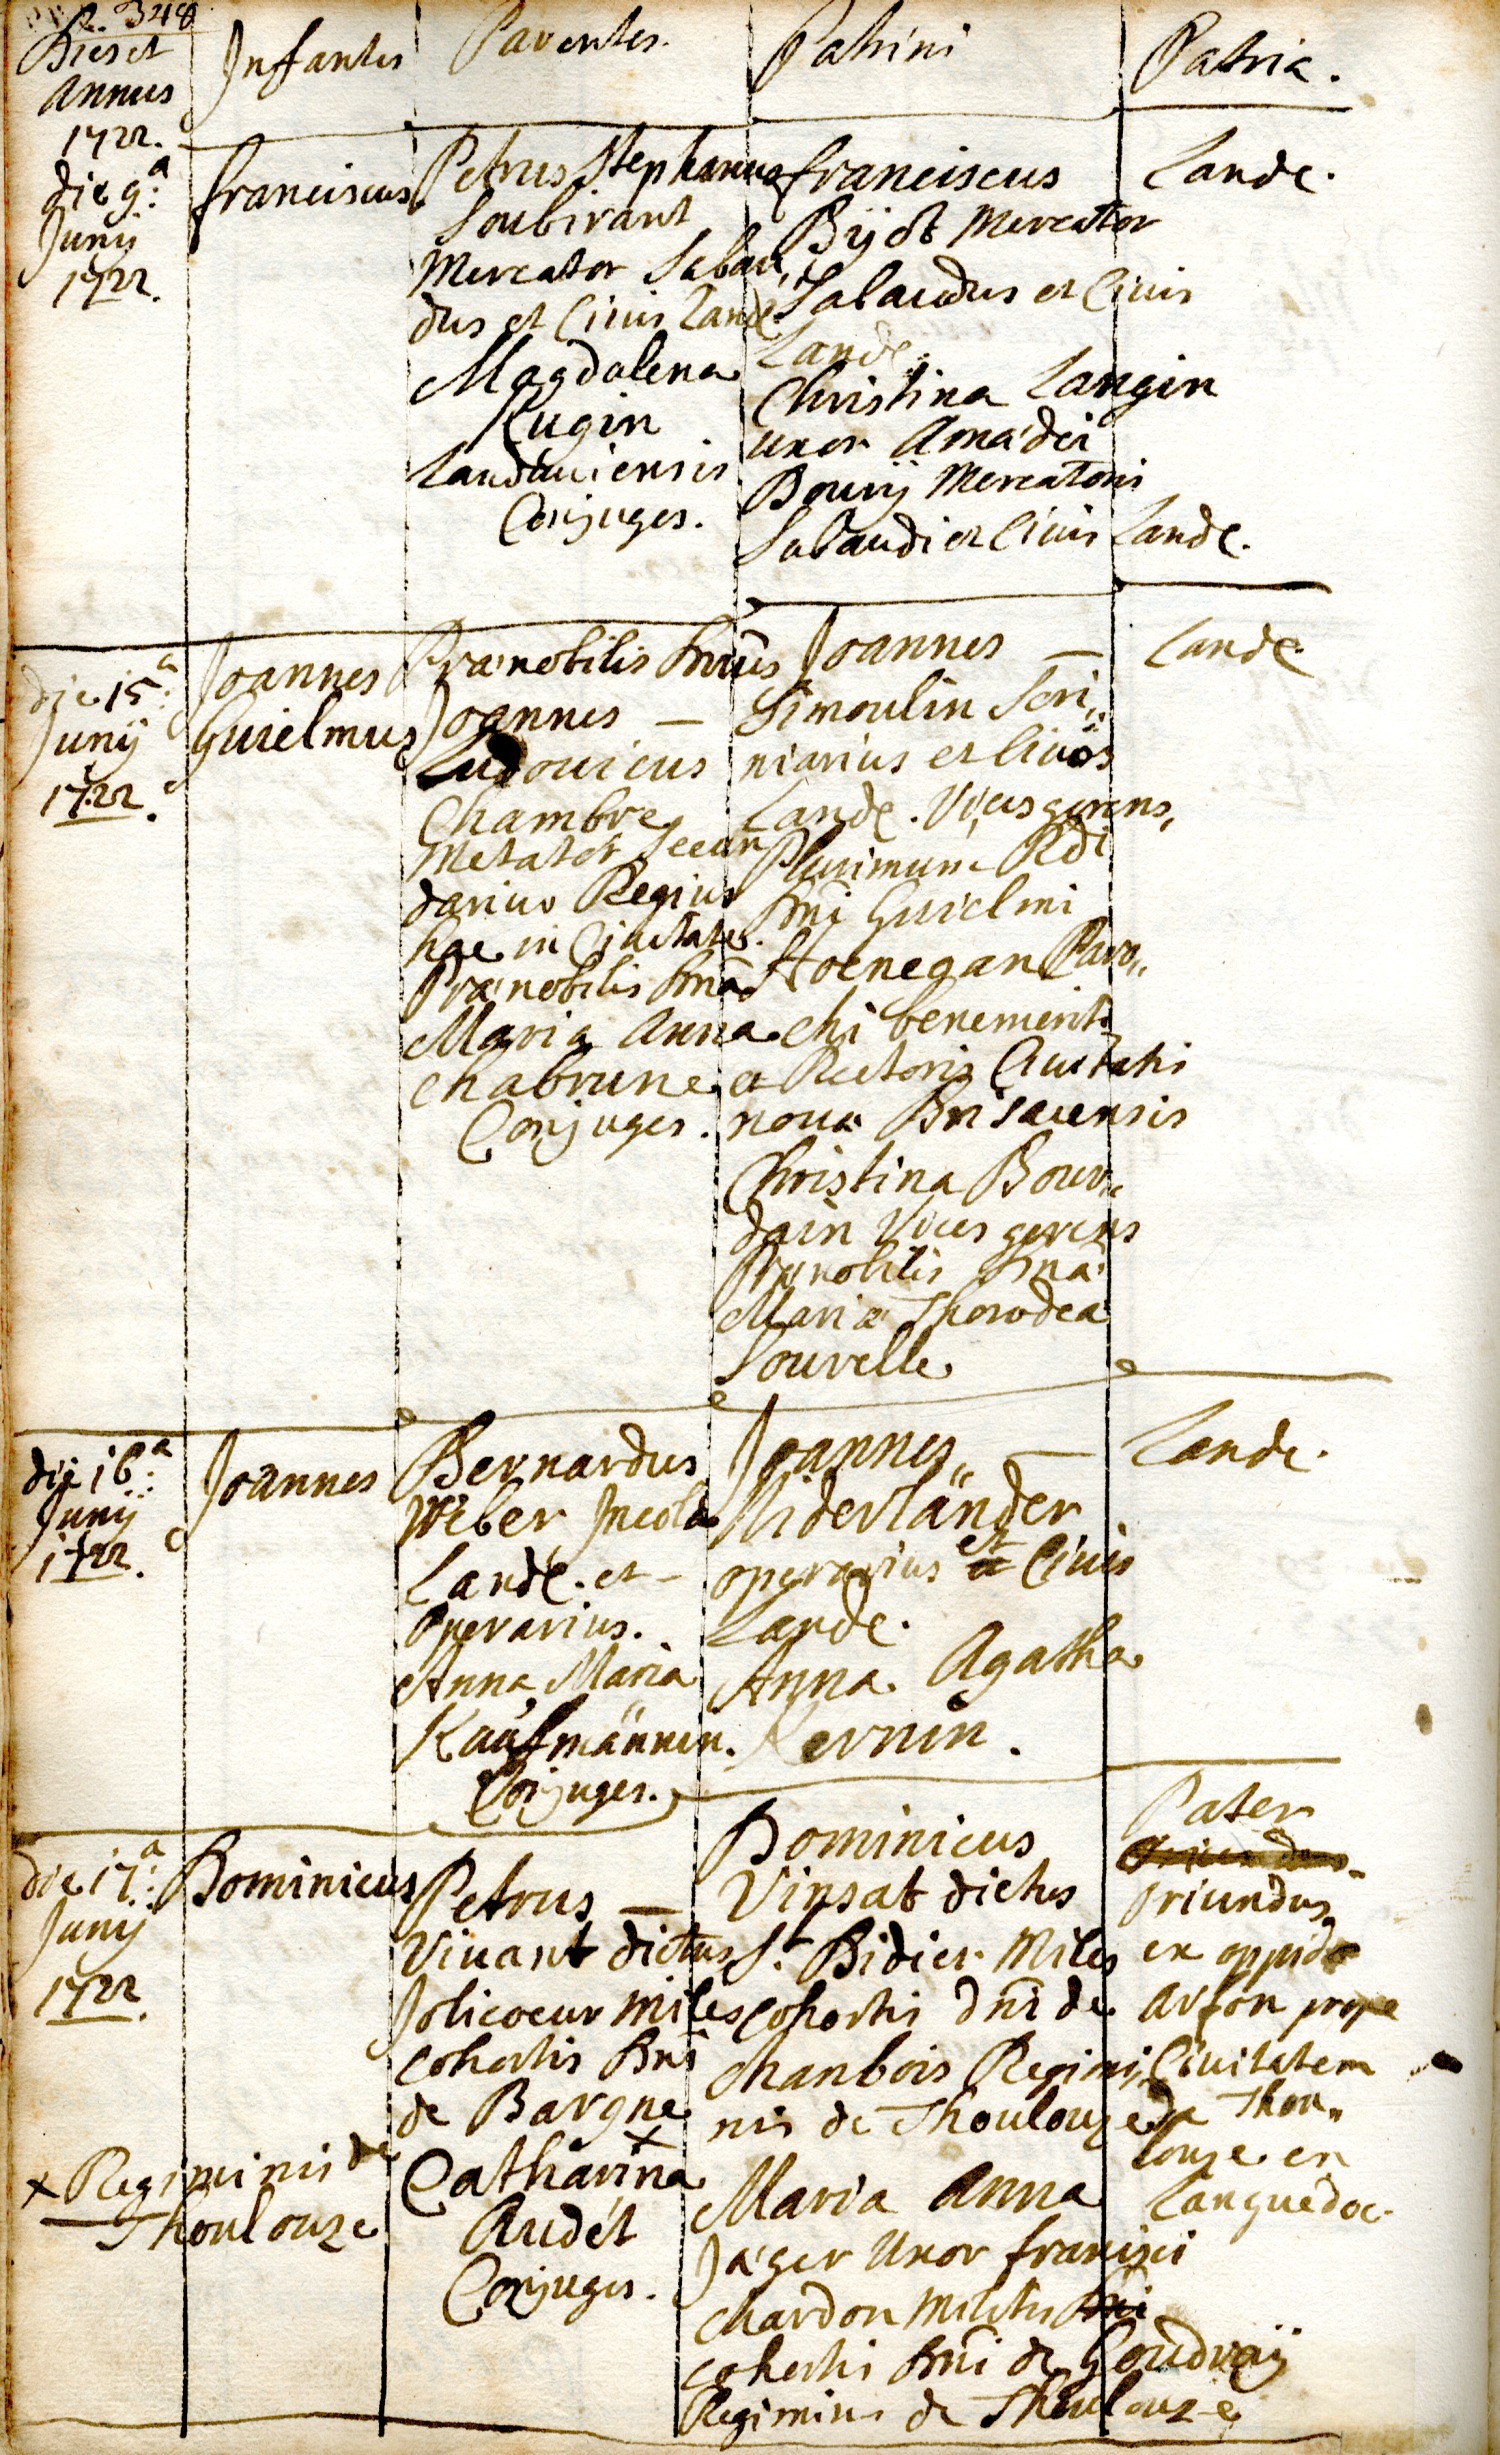 348
Dies et
Annus
1722.
Infantes
Parentes.
Patrini
Patria.
die 9:a
Junij
1722.
Franciscus
Petrus Stephanus
Soubirant
Mercator Sabau,,
dus et Civis Landæ
Magdalena
Kugin
Landaviensis
Conjuges.
Franciscus
Bijot Mercator
Sabaudus et Civis
Landæ.
Christina Langin
uxor Amadei
Bourij Mercatoris
Sabaudi et Civis Landæ.
Landæ.
die 15:a
Junij
1722.
Joannes
Guielmus
Prænobilis Dnus
Joannes —
Ludovicus
Chambre
Metator Secun
darius Regius
hac in Civitate.
Prænobilis Dna
Maria Anna
Chabrune
Conjuges.
Joannes —
Simoulin Scri,,
niarius et Civis
Landæ. Vices gerens,,
Plurimum Rdi
Dni Guielmi
Hoenegan Paro,,
chi benemeriti
et Rectoris Civitatis
novæ Brisacensis
Christina Bour,,
dain Vices gerens
Prænobilis Dnæ
Mariæ Thorodea
Sourelle
Landæ
die 16:a
Junij
1722.
Joannes
Bernardus
Weber Incola
Landæ. et —
Operarius.
Anna Maria
Kaufmännin.
Conjuges.
Joannes,, —
Niderländer
operarius et Civis
Landæ.
Anna Agatha
Kernin.
Landæ.
die 17:a
Junij
1722.
Dominicus
Petrus —
Vivant dictus
Jolicoeur Miles
Cohortis Dni
de Bargne
x
Catharina
Audét
Conjuges.
x Regiminis de
Thoulouze
Dominicus
Vinsat dictus
S. Didier Miles
Cohortis dni de
Chanbois Regimi,,
nis de Thoulouze
Maria Anna
Jæger Uxor Francisci
Chardon Militis Dni
Cohortis Dni de Goudvaij
Regiminis de Thoulouze
Pater
oriundus
ex oppido
Arfon prope
Civitatem
de Thou,,
louze en
Languedoc.